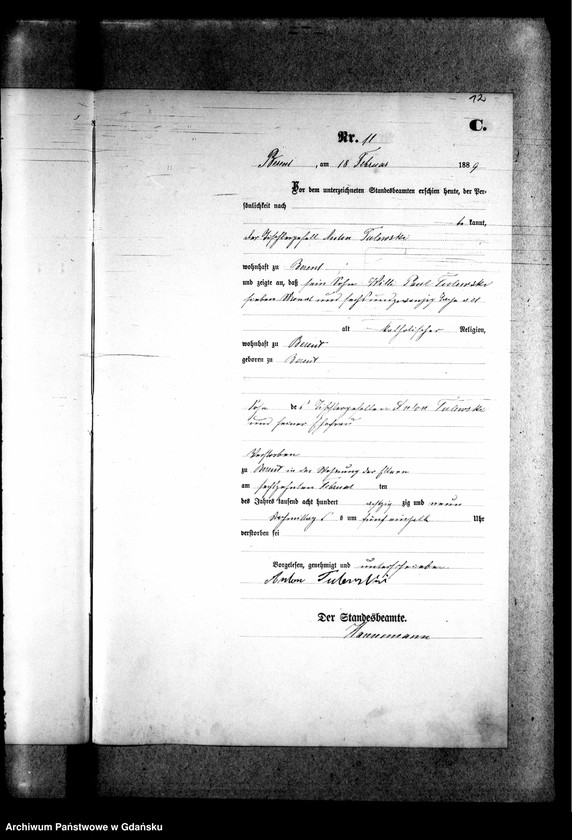 12
C.
Nr. 11
Berent, am 18 Februar 1889
Vor dem unterzeichneten Standesbeamten erschien heute, der Per-
sönlichkeit nach
be kannt,
der Tischlergesell Anton Tulewski
wohnhaft zu Berent
und zeigte an, daß sein Sohn Willi Paul Tulewski
sieben Monat und sechs und zwanzig Tage alt
alt katholischer Religion,
wohnhaft zu Berent
geboren zu Berent
Sohn des Tischlergesellen Anton Tulewski
und seiner Ehefrau
verstorben
zu Berent in der Wohnung der Eltern
am sechzehnten Februar ten
des Jahres tausend acht hundert achtzig zig und neun
Nachmittags um fünf einhalb Uhr
verstorben sei
Vorgelesen, genehmigt und unterschrieben
Anton Tulewski
Der Standesbeamte.
Hannemann
Archiwum Państwowe w Gdańsku